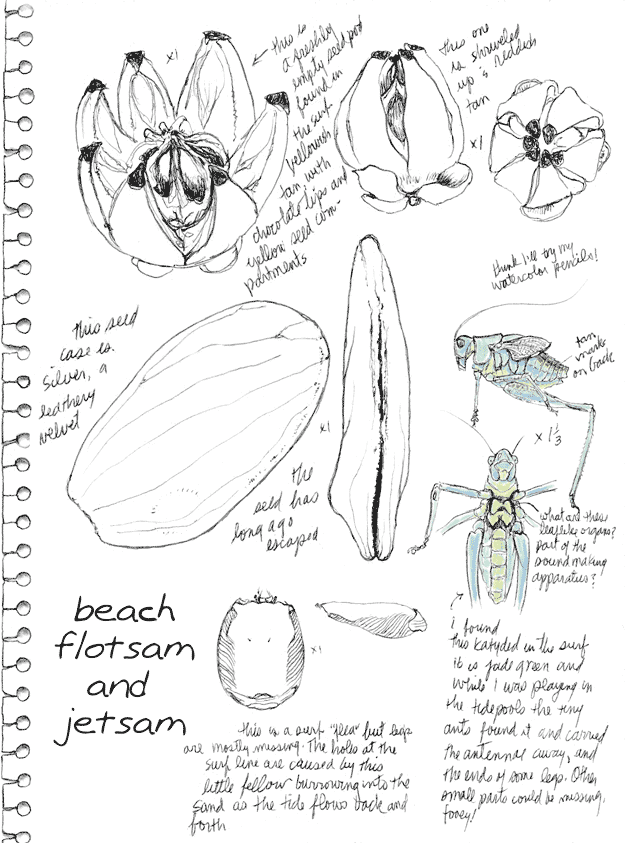 x1
this is
a freshly
empty seed pod
found in
the surf
yellowish
tan with
chocolate tips and
yellow seed com-
partments
this one
is shriveled
up & reddish
tan
x1
think I'll try my
watercolor pencils!
this seed
case is
silver, a
leathery
velvet
x1
the
seed has
long ago
escaped
tan
marks
on back
x 1 1/3
what are these
leaflike organs?
part of the
sound making
apparatus?
beach
flotsam
and
jetsam
x1
this is a surf "flea" but legs
are mostly missing. The holes at the
surf line are caused by this
little fellow burrowing into the
sand as the tide flows back and
forth
i found
this katydid in the surf
it is jade green and
while I was playing in
the tidepools the tiny
ants found it and carried
the antennae away, and
the ends of some legs. Other
small parts could be missing,
fooey!